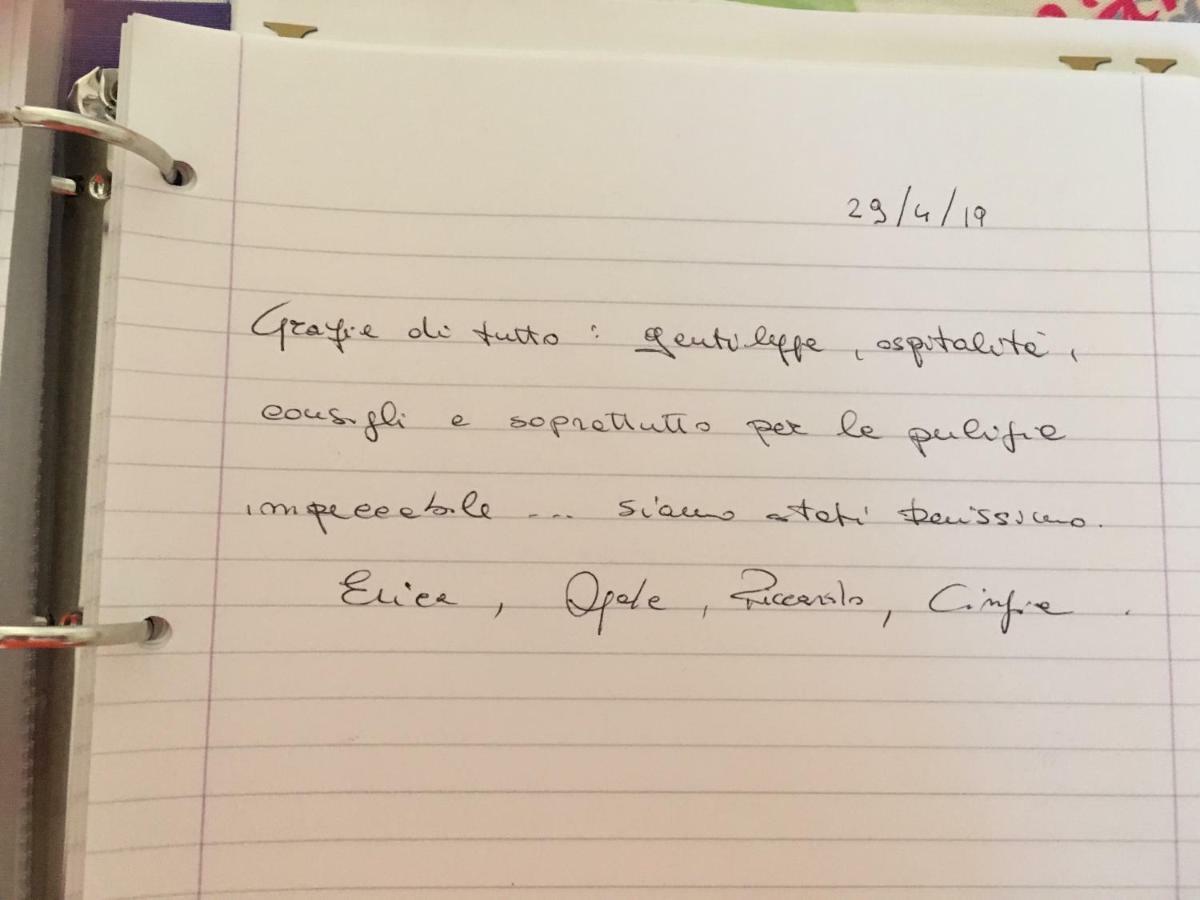 29/4/19
Grazie di tutto: gentilezze, ospitalità,
consigli e soprattutto per la pulizia
impeccabile ... siamo stati benissimo.
Erica, Riccardo, Cinzia.